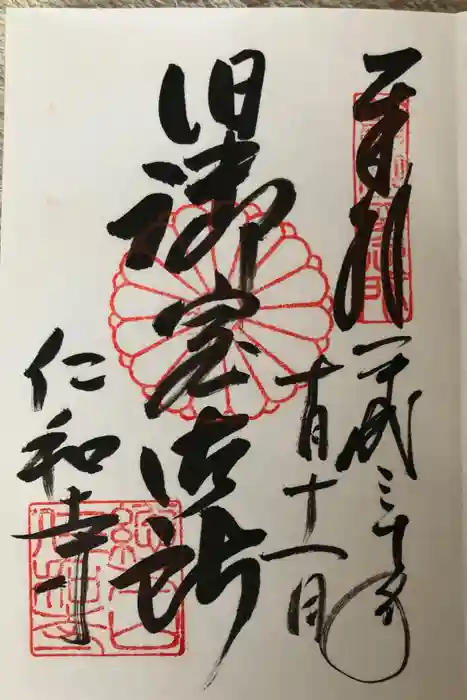 奉拝
平成三十年
十月十一日
旧御室御所
仁和寺